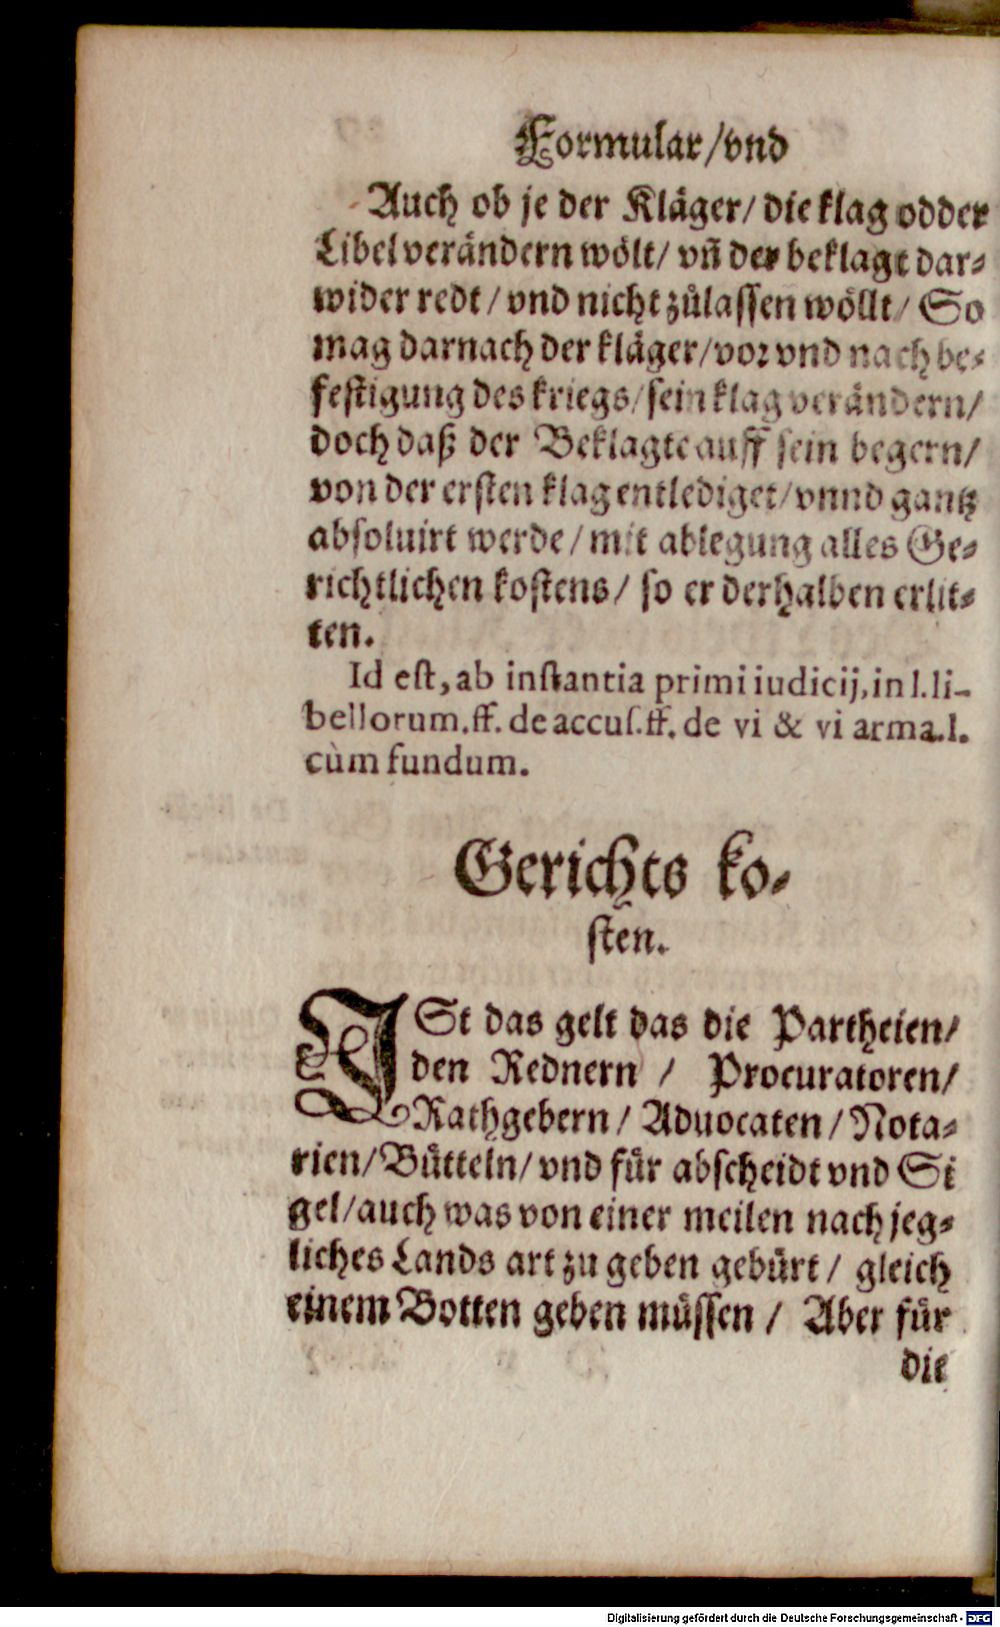 Formular/vnd
Auch ob je der Kläger/ die klag odder
Libel verändern wölt/ vñ der beklagt dar-
wider redt/ vnd nicht zůlassen wöllt/ So
mag darnach der kläger/ vor vnd nach be-
festigung des kriegs/ sein klag verändern/
doch daß der Beklagte auff sein begern/
von der ersten klag entlediget/ vnnd gantz
absoluirt werde/ mit ablegung alles Ge-
richtlichen kostens/ so er derhalben erlit-
ten.
Id est, ab instantia primi iudicij, in l. li-
bellorum. ff. de accus. ff. de vi & vi arma. l.
cùm fundum.
Gerichts ko-
sten.
ISt das gelt das die Partheien/
den Rednern / Procuratoren/
Rathgebern/ Aduocaten/ Nota-
rien/ Bütteln/ vnd für abscheidt vnd Si
gel/ auch was von einer meilen nach jeg-
liches Lands art zu geben gebürt/ gleich
einem Botten geben müssen / Aber für
die
Digitalisierung gefördert durch die Deutsche Forschungsgemeinschaft - DFG